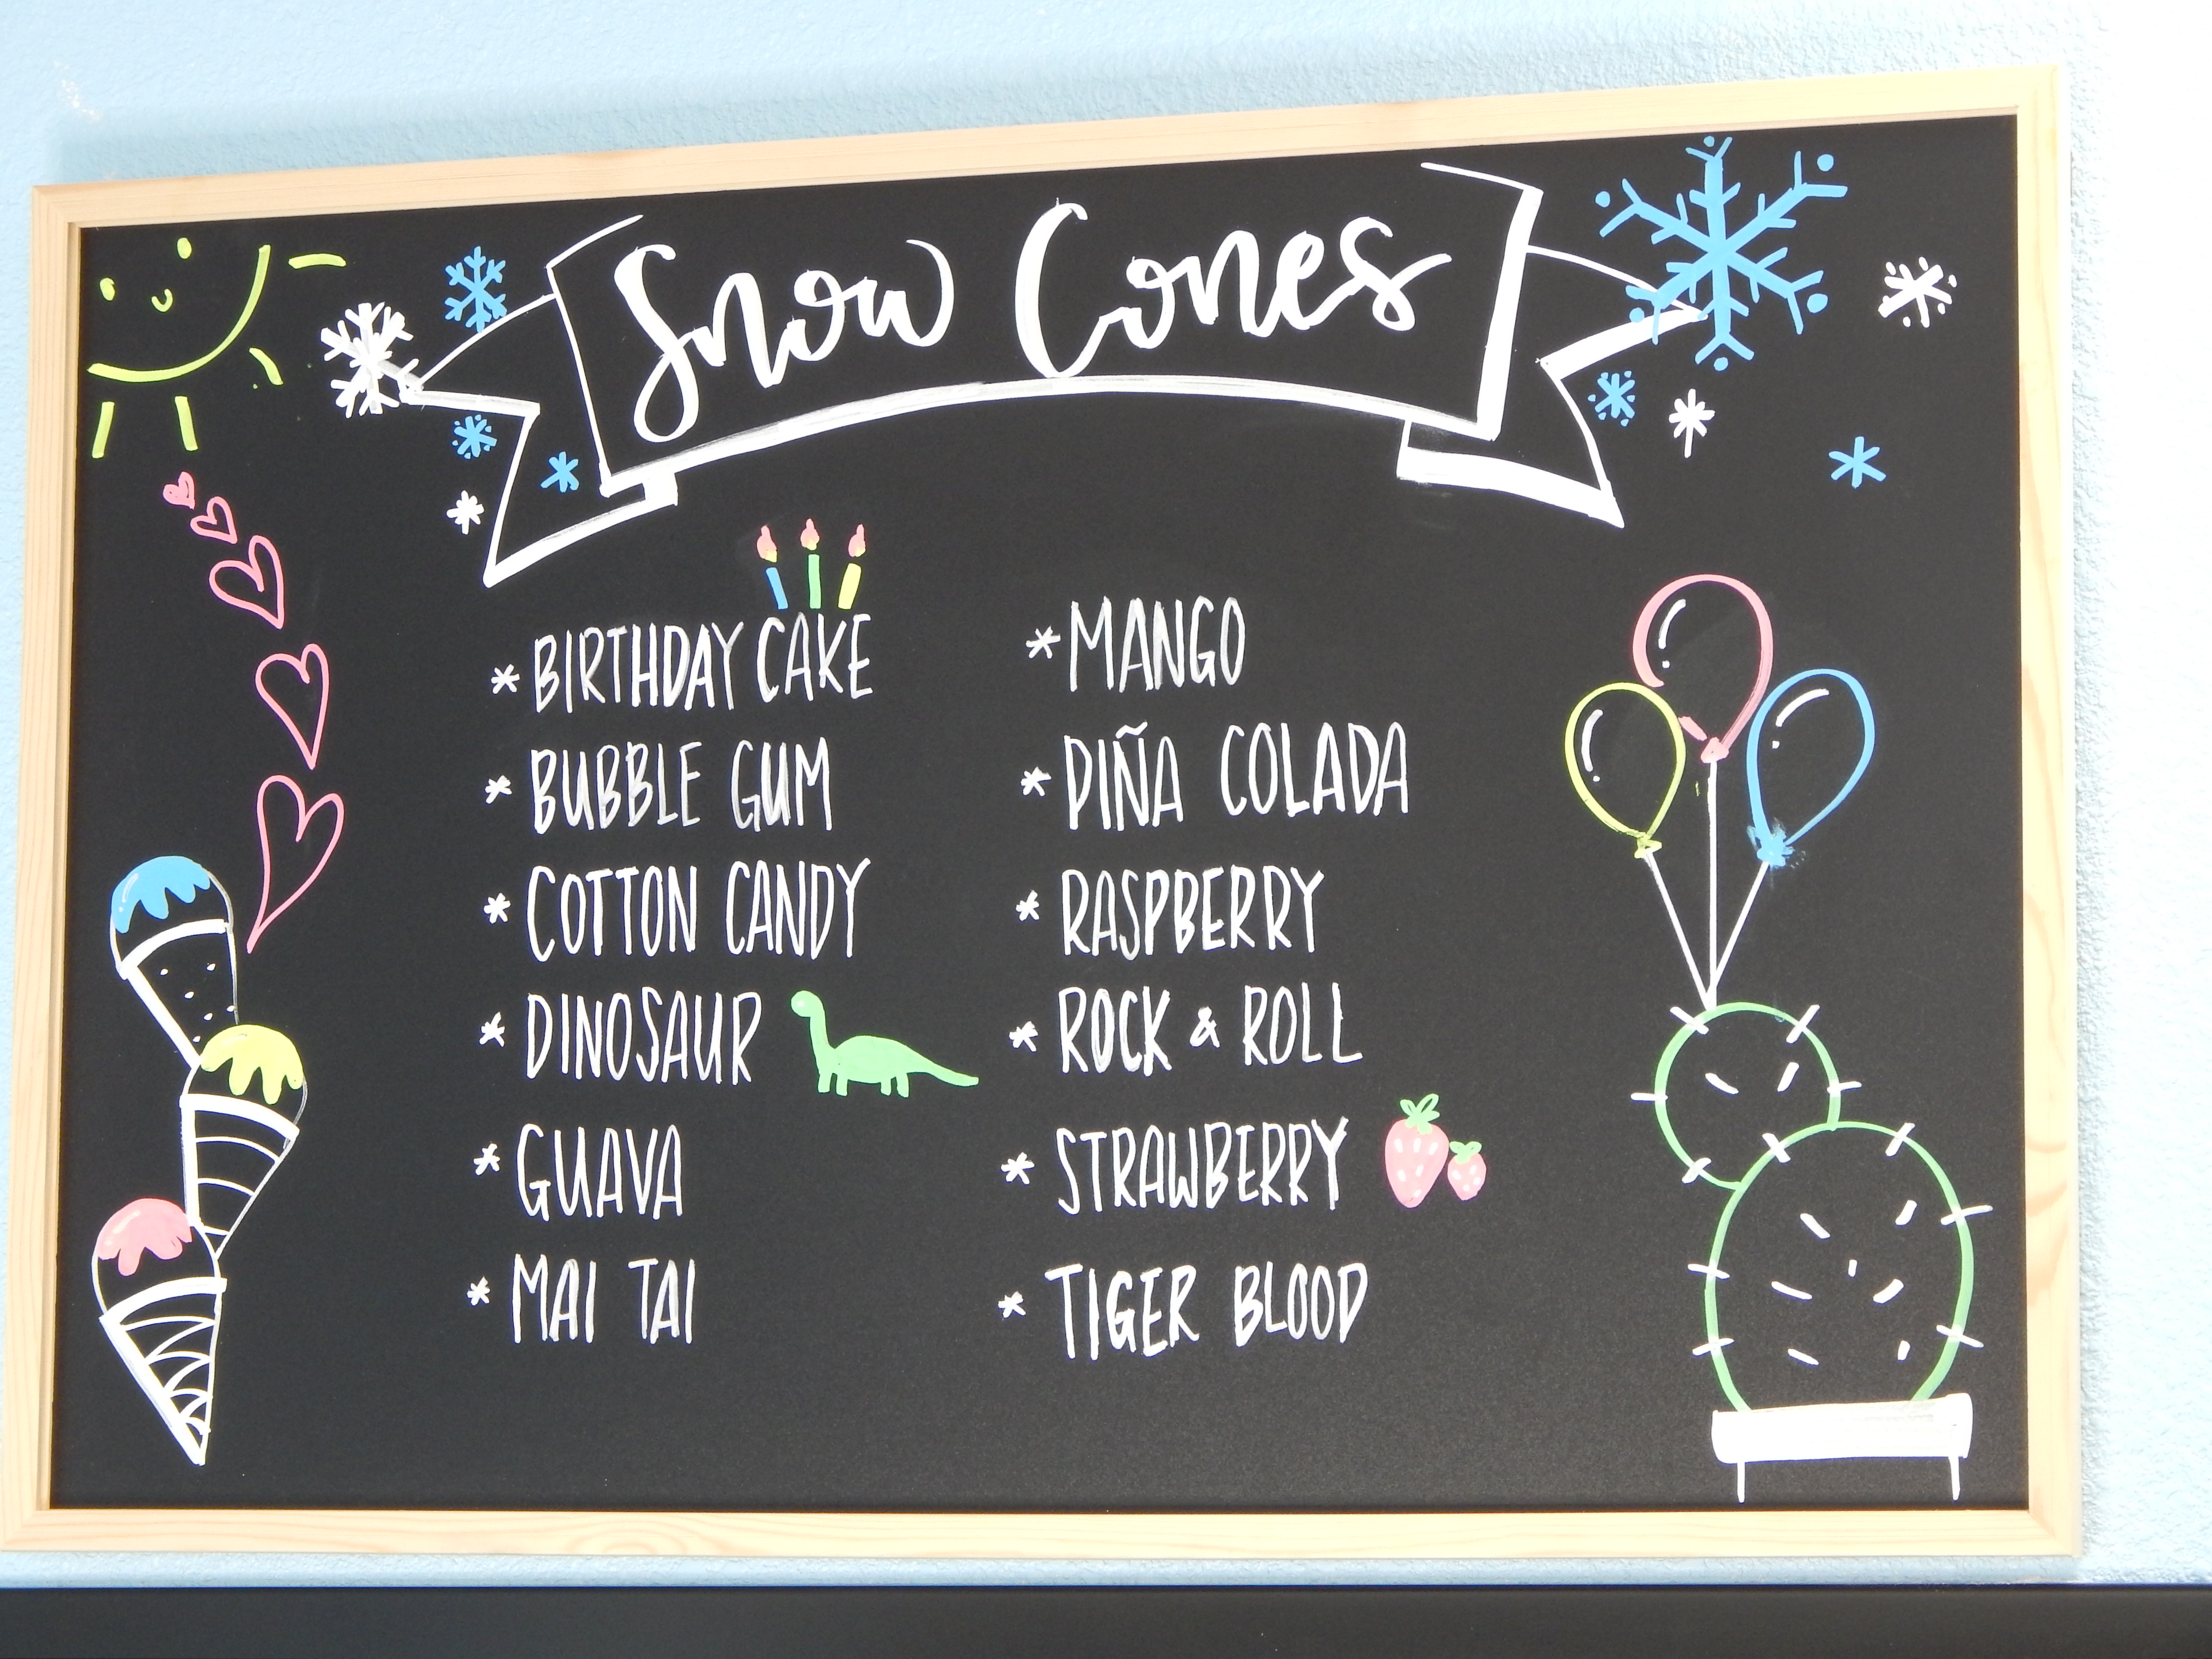 Snow Cones
* BIRTHDAY CAKE
* BUBBLE GUM
* COTTON CANDY
* DINOSAUR
* GUAVA
* MAI TAI
* MANGO
* PIÑA COLADA
* RASPBERRY
* ROCK & ROLL
* STRAWBERRY
* TIGER BLOOD